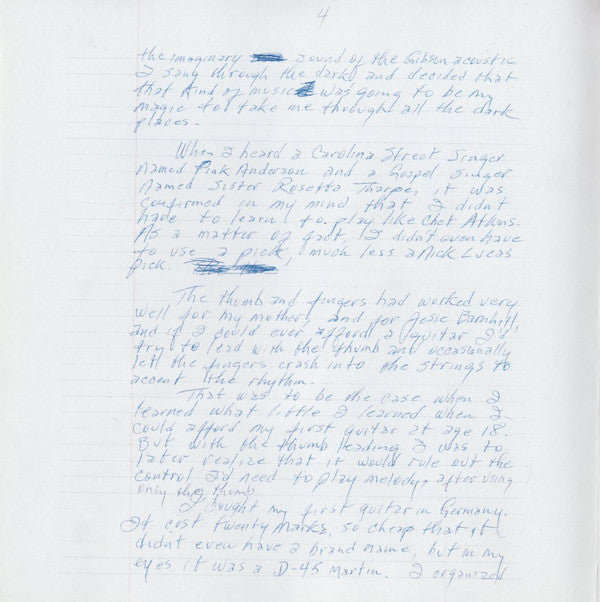 4
the imaginary sound of the Gibson acoustic
I sang through the dark, and decided that
that kind of music was going to be my
magic to take me through all the dark
places.
When I heard a Carolina Street Singer
Named Pink Anderson and a Gospel Singer
Named Sister Rosetta Tharpe, it was
confirmed in my mind that I didn't
have to learn to play like Chet Atkins.
As a matter of fact, I didn't even have
to use a pick, much less a Nick Lucas
pick.
The thumb and fingers had worked very
well for my mother, and for Jesse Barnhill,
and if I could ever afford a guitar I'd
try to lead with the thumb and occasionally
let the fingers crash into the strings to
accent the rhythm.
That was to be the case when I
learned what little I learned when I
could afford my first guitar at age 18.
But with the thumb leading I was to
later realize that it would rule out the
control I'd need to play melody after using
only the thumb.
I bought my first guitar in Germany.
It cost twenty Marks, so cheap that it
didnt even have a brand name, but in my
eyes it was a D-45 Martin. I organized